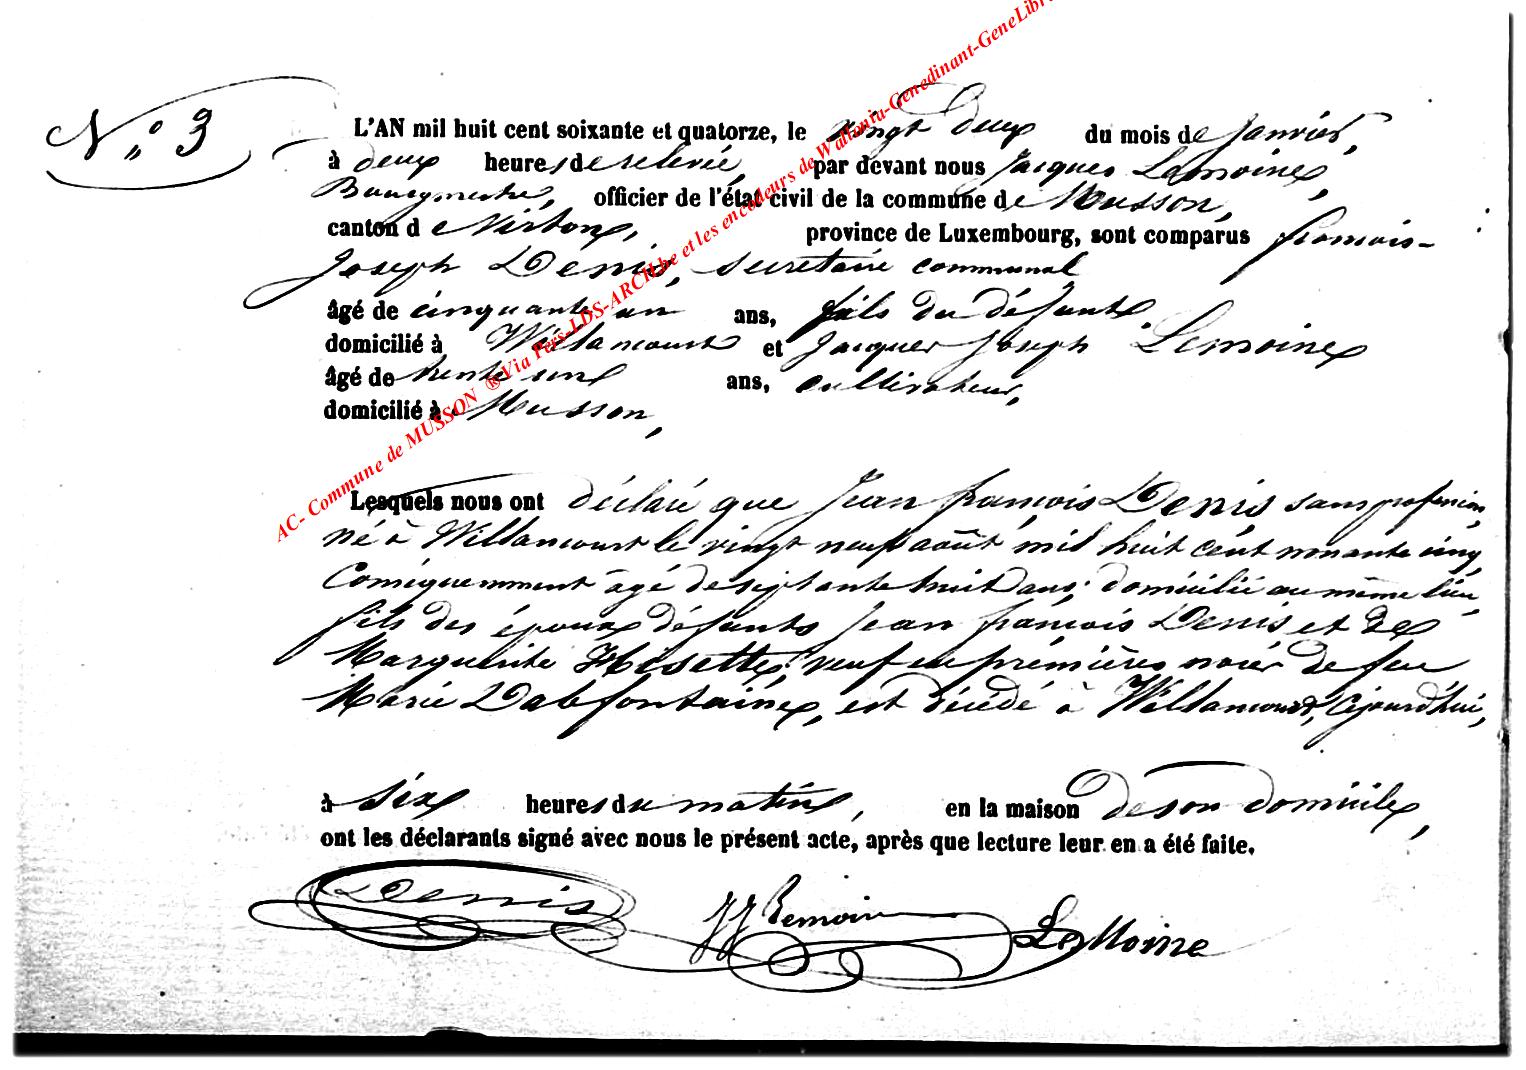 N° 3
L'AN mil huit cent soixante et quatorze, le vingt deux du mois de Janvier,
à deux heures de relevée, par devant nous Jacques Lemoine,
Bourgmestre, officier de l'état civil de la commune de Musson,
canton de Virton, province de Luxembourg, sont comparus françois-
Joseph Denis, secrétaire communal
âgé de cinquante un ans, fils du défunt
domicilié à Willancourt et Jacques Joseph Lemoine
âgé de trente ans, cultivateur,
domicilié à Musson,
Lesquels nous ont déclaré que Jean françois Denis sans profession,
né à Willancourt le vingt neuf août mil huit cent nonante cinq
Conséquemment âgé de septante huit ans, domicilié au même lieu,
fils des époux défunts Jean françois Denis et de
Marguerite veuf en premières noces de feu
Marie Dabfontaine, est décédé à Willancourt, cejourd'hui,
à six heures du matin, en la maison de son domicile,
ont les déclarants signé avec nous le présent acte, après que lecture leur en a été faite.
Denis JJ Lemoine LeMoine
AC- Commune de MUSSON ® Via Pers-LDS-ARCH.be et les encodeurs de Wallonia-Genedinant-GeneLibr